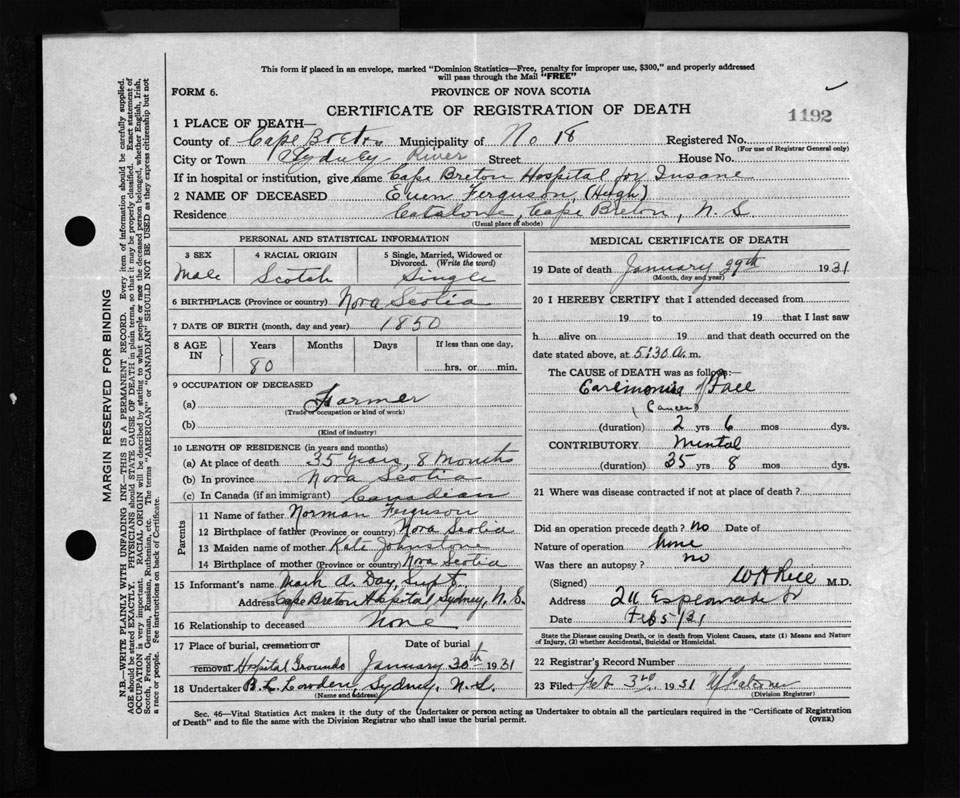 This form if placed in an envelope, marked "Dominion Statistics—Free, penalty for improper use, $300," and properly addressed
will pass through the Mail "FREE"
FORM 6. PROVINCE OF NOVA SCOTIA
CERTIFICATE OF REGISTRATION OF DEATH 1192
1 PLACE OF DEATH—
County of Cape Breton Municipality of No 18 Registered No.
(For use of Registrar General only)
City or Town Sydney River Street House No.
If in hospital or institution, give name Cape Breton Hospital for Insane
2 NAME OF DECEASED Ewen Ferguson, (Hugh)
Residence Catalone, Cape Breton, N. S
(Usual place of abode)
PERSONAL AND STATISTICAL INFORMATION
3 SEX 4 RACIAL ORIGIN 5 Single, Married, Widowed or
Divorced. (Write the word)
Male Scotch Single
6 BIRTHPLACE (Province or country) Nova Scotia
7 DATE OF BIRTH (month, day and year) 1850
8 AGE IN Years Months Days If less than one day,
80 hrs. or min.
9 OCCUPATION OF DECEASED
(a) Farmer
(Trade or occupation or kind of work)
(b)
(Kind of industry)
10 LENGTH OF RESIDENCE (in years and months)
(a) At place of death 35 Years, 8 Months
(b) In province Nova Scotia
(c) In Canada (if an immigrant) Canadian
Parents
11 Name of father Norman Ferguson
12 Birthplace of father (Province or country) Nova Scotia
13 Maiden name of mother Kate Johnstone
14 Birthplace of mother (Province or country) Nova Scotia
15 Informant's name Mark A. Day, Supt.
Address Cape Breton Hospital Sydney, N. S.
16 Relationship to deceased None
17 Place of burial, cremation or Date of burial
removal Hospital Grounds January 30th 1931
18 Undertaker B. L. Lowden, Sydney, N. S.
(Name and address)
MEDICAL CERTIFICATE OF DEATH
19 Date of death January 29th 1931
(Month, day and year)
20 I HEREBY CERTIFY that I attended deceased from
19 to 19 that I last saw
h alive on 19 and that death occurred on the
date stated above, at 5:30 a. m.
The CAUSE of DEATH was as follows:—
of Face
(Cancer)
(duration) 2 yrs 6 mos dys.
CONTRIBUTORY Mental
(duration) 35 yrs 8 mos dys.
21 Where was disease contracted if not at place of death?
Did an operation precede death? No Date of
Nature of operation None
Was there an autopsy? no
(Signed) M.D.
Address 211 Esplanade
Date Feb 5/31
State the Disease causing Death, or in death from Violent Causes, state (1) Means and Nature
of Injury, (2) whether Accidental, Suicidal or Homicidal.
22 Registrar's Record Number
23 Filed Feb 3rd 1931
(Division Registrar)
Sec. 46—Vital Statistics Act makes it the duty of the Undertaker or person acting as Undertaker to obtain all the particulars required in the "Certificate of Registration
of Death" and to file the same with the Division Registrar who shall issue the burial permit. (OVER)
MARGIN RESERVED FOR BINDING
N.B.—WRITE PLAINLY WITH UNFADING INK—THIS IS A PERMANENT RECORD. Every item of information should be carefully supplied.
AGE should be stated EXACTLY. PHYSICIANS should STATE CAUSE OF DEATH in plain terms, so that it may be properly classified. Exact statement of
OCCUPATION is very important. RACIAL ORIGIN will be described by stating to what people or race the deceased person belonged, whether English, Irish,
Scotch, French, German, Russian, Ruthenian, etc. The terms "AMERICAN" or "CANADIAN" SHOULD NOT BE USED as they express citizenship but not
a race or people. See instructions on back of Certificate.